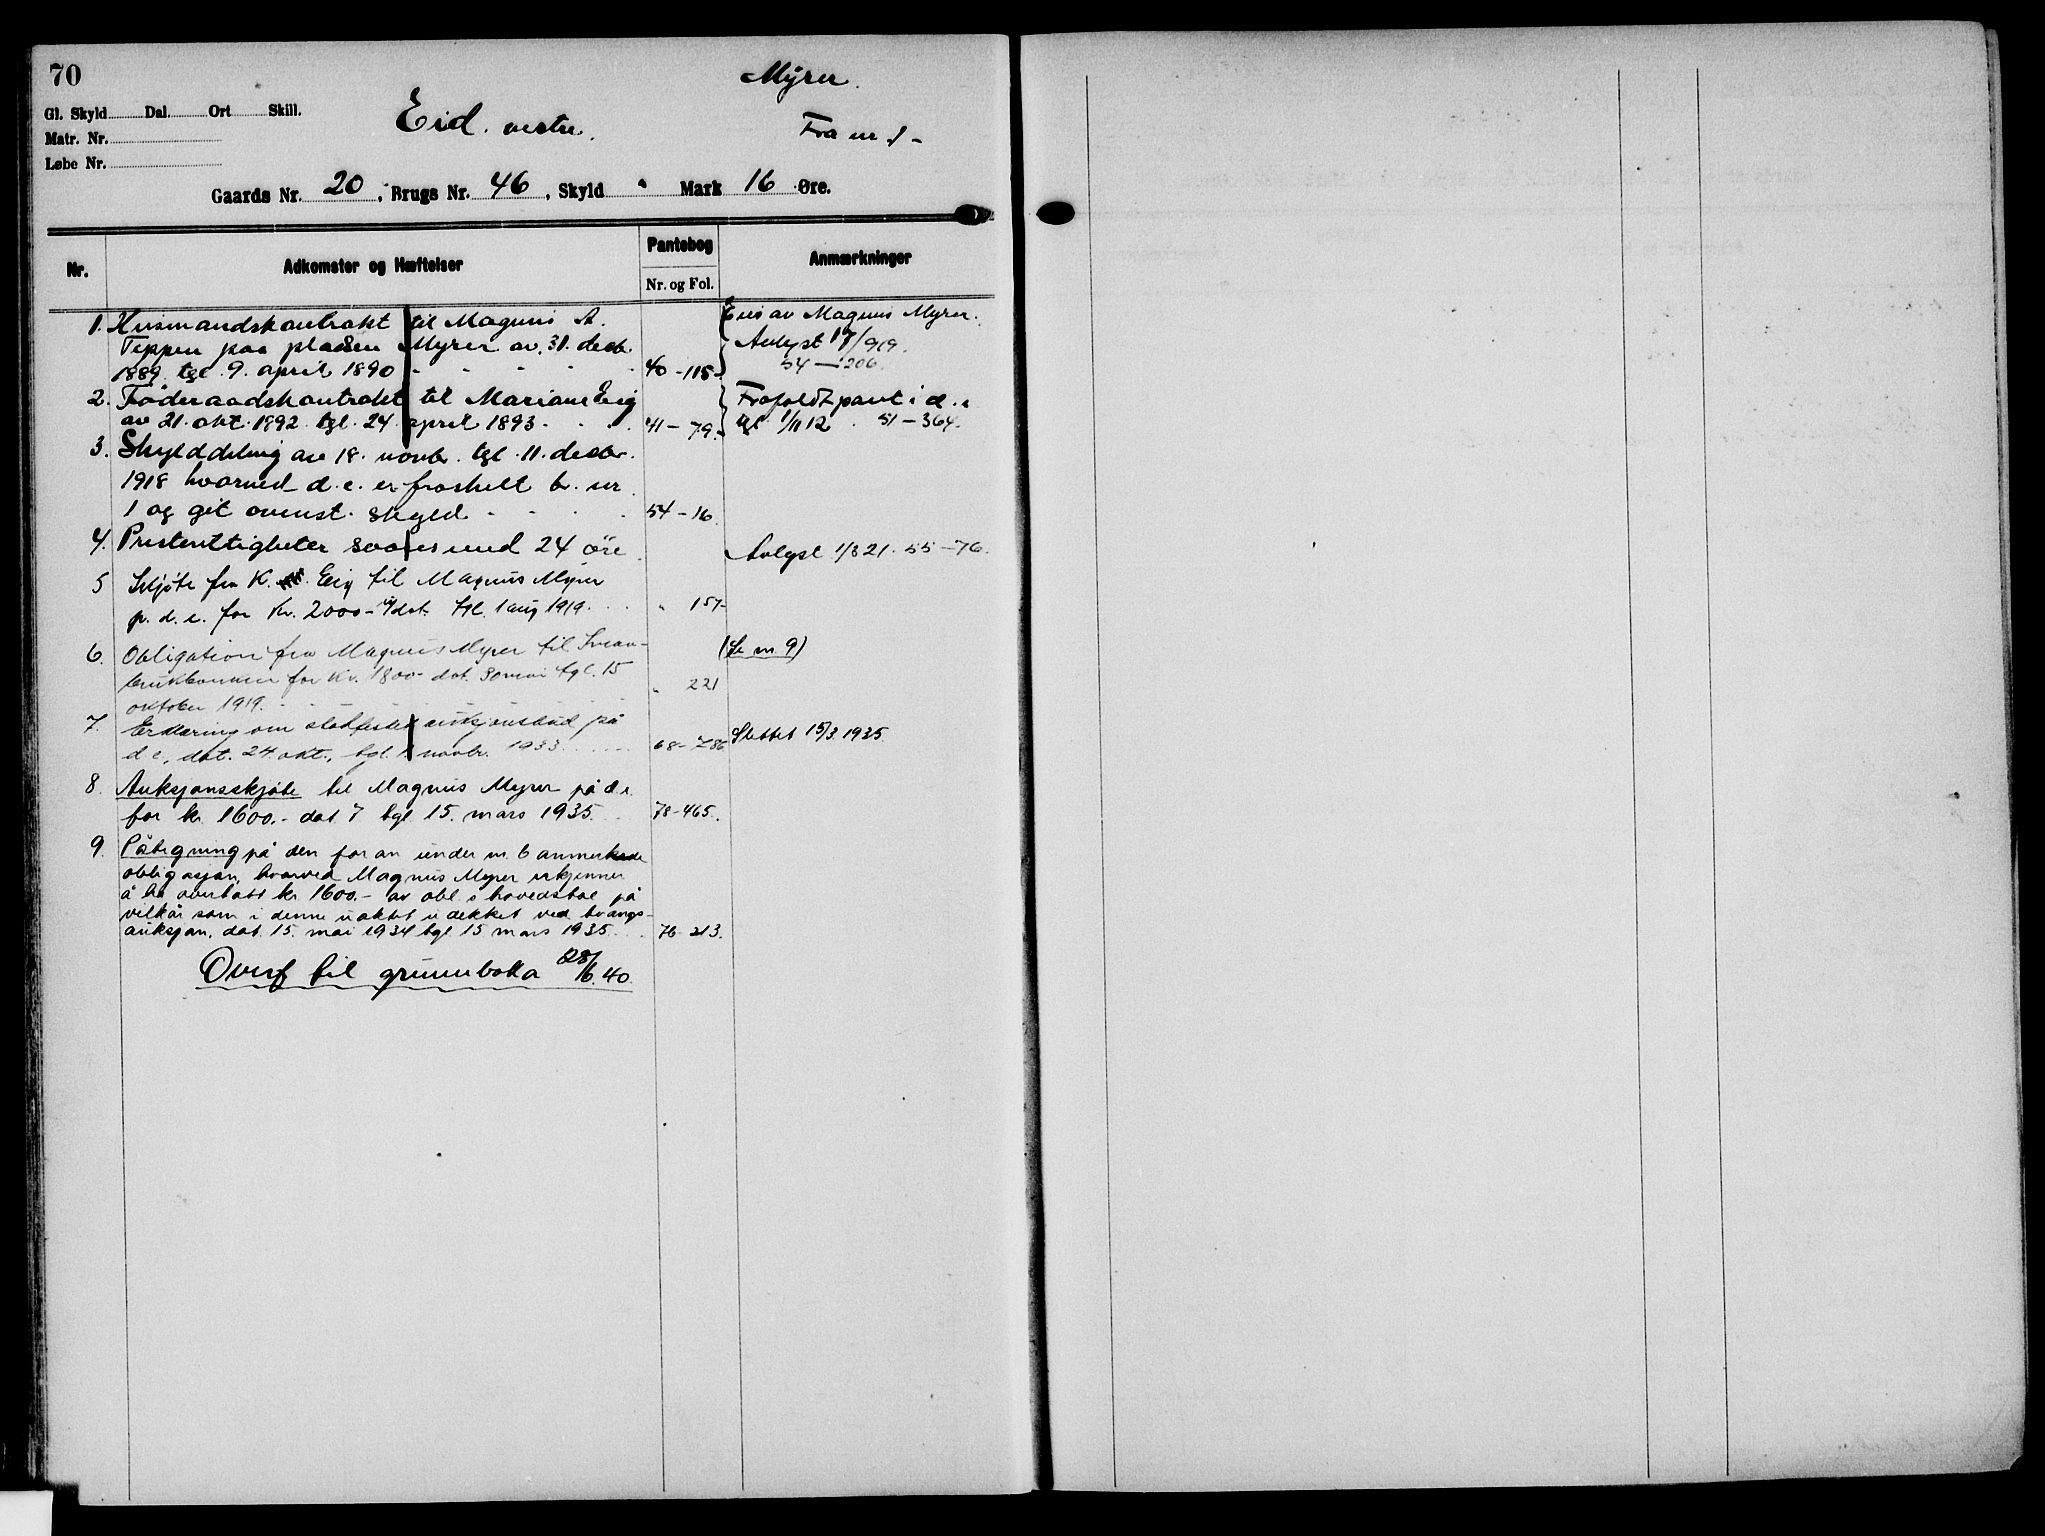 70
Myrer.
Gl. Skyld Dal. Ort Skill.
Eid. vestre.
Fra nr 1-
Matr. Nr.
Løbe Nr.
Gaards Nr. 20, Brugs Nr. 46, Skyld " Mark 16 Øre.
Nr. Adkomster og Hæftelser Pantebog Nr. og Fol. Anmærkninger
1. Husmandskontrakt til Magnus A. Eies av Magnus Myrer.
Teppen paa pladsen Myrer av 31. decbr. Avlyst 17/919.
1889 tgl. 9. april 1890 40-115- 54-206.
2. Føderaadskontrakt til Mariane Eeig Frafaldt pant i d. e
av 21. okt. 1892 tgl. 24 april 1893 41-79. tgl 1/11 12. 51-364.
3. Skylddeling av 18. novbr. tgl. 11. decbr.
1918 hvorved d. e. er fraskilt br. nr
1 og git ovenst. skyld 54-16.
4. Presterettigheter svares med 24 øre Avlyst 1/3 21. 55-76.
5 Skjøte fra K. Eeig til Magnus Myrer
p. d. e. for Kr. 2000- dat. tgl. 1 aug 1919. " 157-
6. Obligation fra Magnus Myrer til (Se nr 9)
for Kr. 1800- dat. 30 mai tgl. 15
oktober 1919. " 221
7. Erklæring om stadfestet auksjonsbud på
d e, dat. 24 okt., tgl. novbr. 1933 68-786 Slettet 15/3 1935
8. Auksjonsskjøte til Magnus Myrer på d. e.
for kr 1600.- dat 7 tgl 15. mars 1935. 78-465.
9. Påtegning på den foran under nr. 6 anmerkede
obligasjon, hvorved Magnus Myrer erkjenner
å ha overtatt kr 1600.- av obl.s hovedstol på
vilkår som i denne uaktet udekket ved tvangs-
auksjon, dat. 15. mai 1934 tgl 15 mars 1935. 76-213.
Overf til grunnboka 28/16.40.